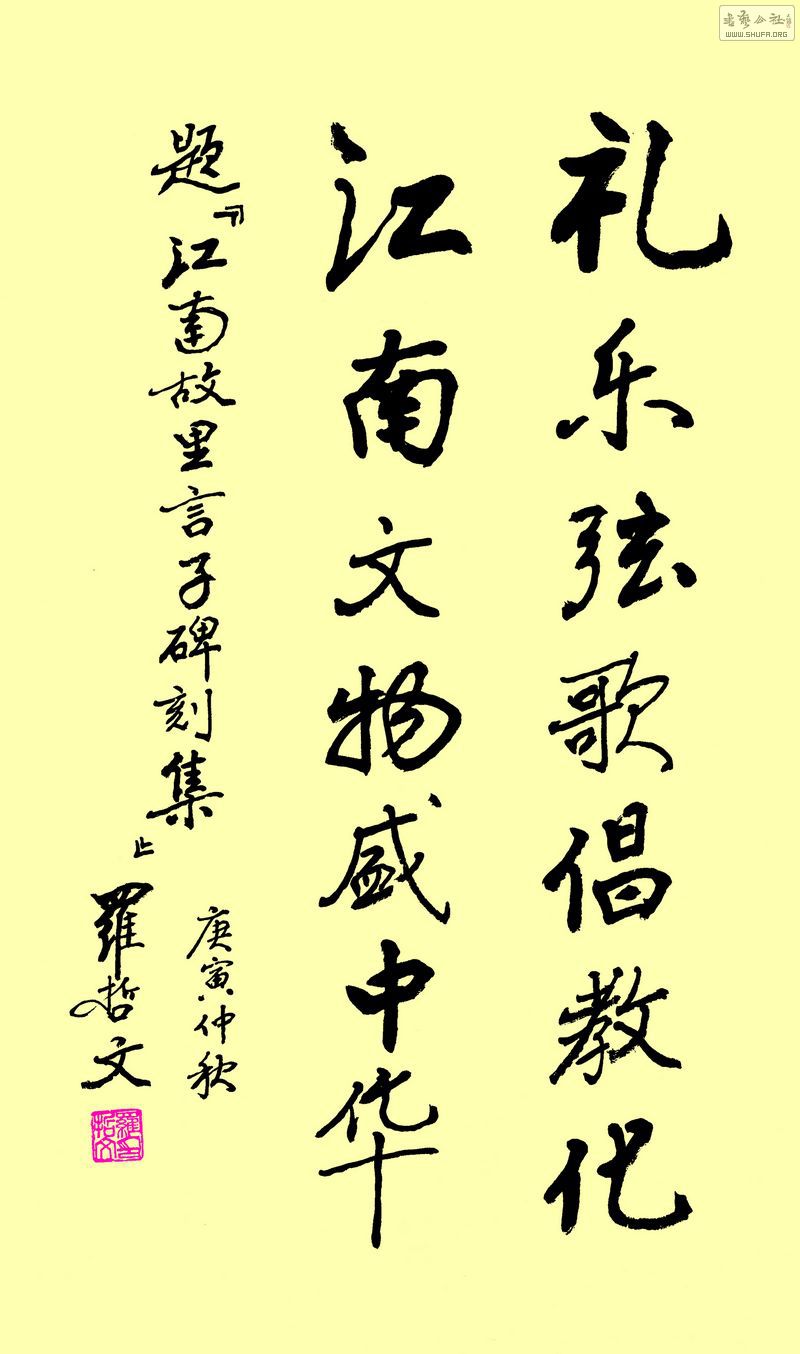 礼乐弦歌倡教化
江南文物盛中华
题『江南故里言子碑刻集』
庚寅仲秋
羅哲文
WWW.SHUFA.ORG